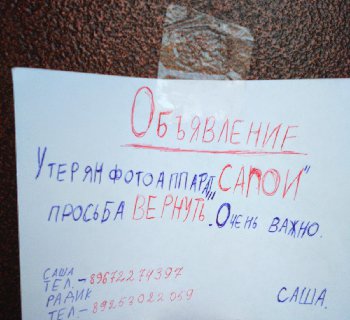 ОБЪЯВЛЕНИЕ
УТЕРЯН ФОТОАППАРАТ „САПОИ"
ПРОСЬБА ВЕРНУТЬ. ОЧЕНЬ ВАЖНО.
САША
ТЕЛ. – 89672274397
РАДИК
ТЕЛ – 89253022059
САША.